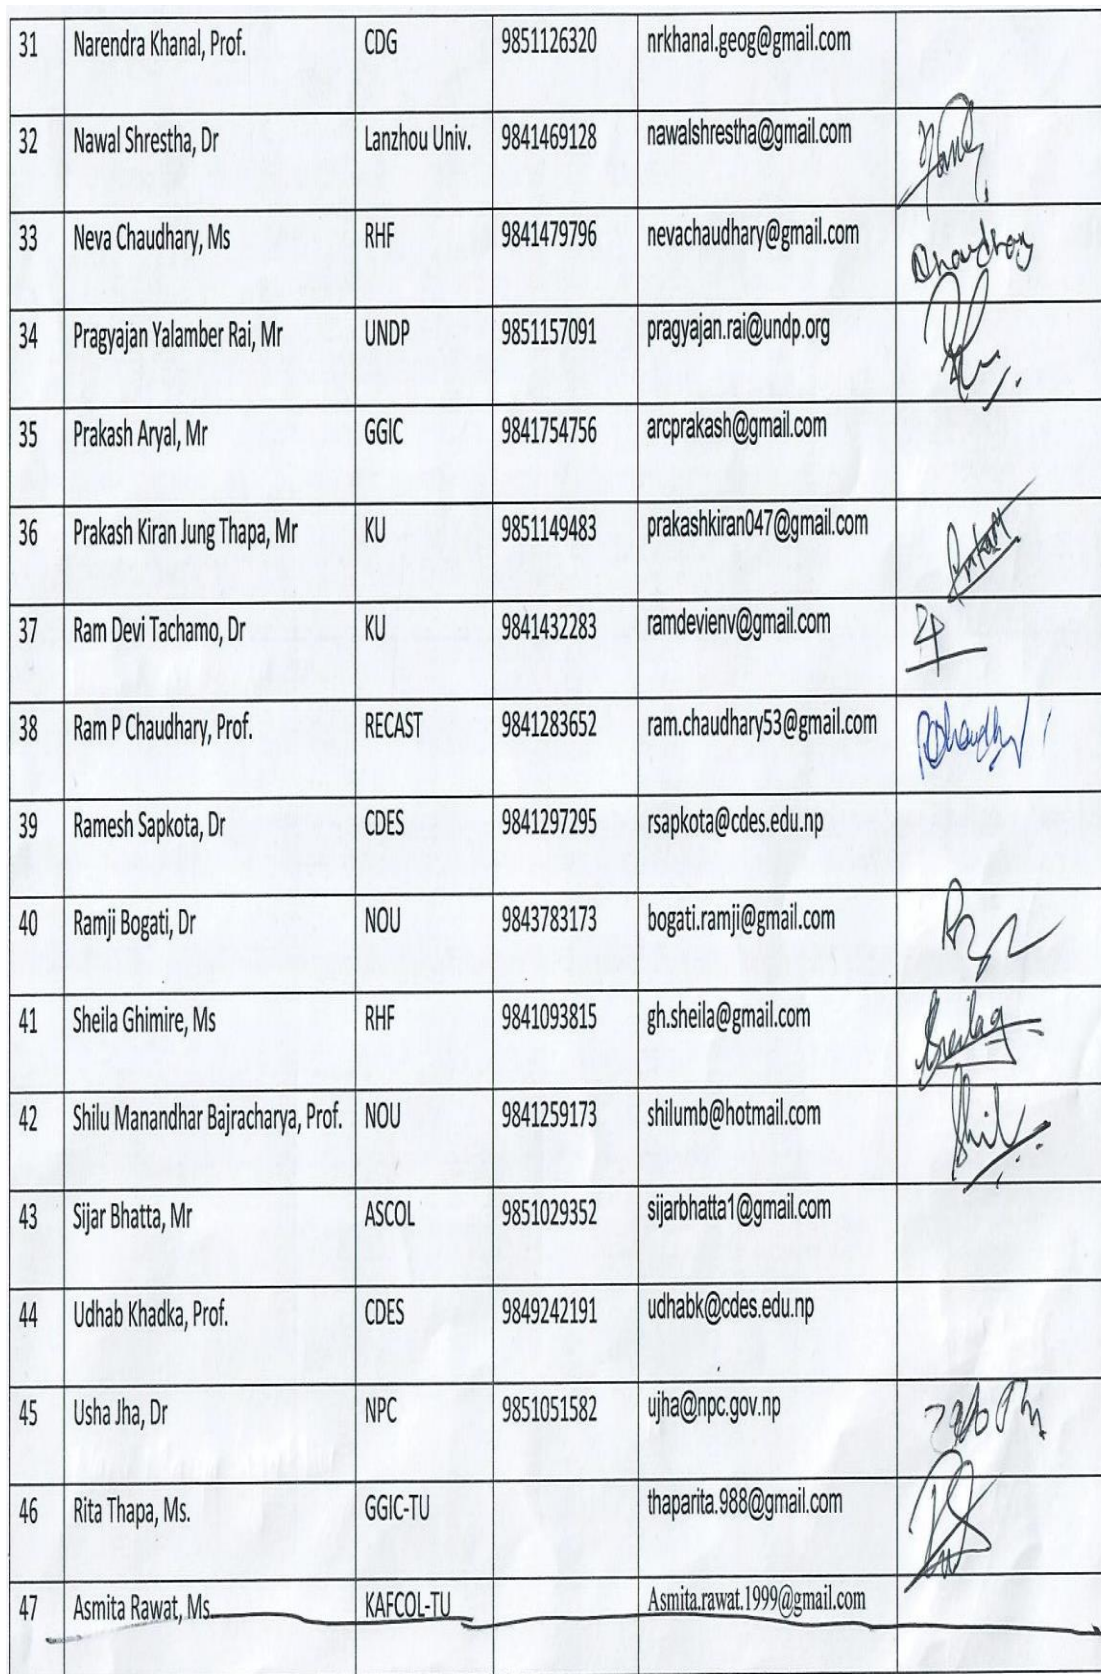 31 Narendra Khanal, Prof. CDG 9851126320 nrkhanal.geog@gmail.com
32 Nawal Shrestha, Dr Lanzhou Univ. 9841469128 nawalshrestha@gmail.com
33 Neva Chaudhary, Ms RHF 9841479796 nevachaudhary@gmail.com Chaudhary
34 Pragyajan Yalamber Rai, Mr UNDP 9851157091 pragyajan.rai@undp.org
35 Prakash Aryal, Mr GGIC 9841754756 arcprakash@gmail.com
36 Prakash Kiran Jung Thapa, Mr KU 9851149483 prakashkiran047@gmail.com
37 Ram Devi Tachamo, Dr KU 9841432283 ramdevienv@gmail.com
38 Ram P Chaudhary, Prof. RECAST 9841283652 ram.chaudhary53@gmail.com
39 Ramesh Sapkota, Dr CDES 9841297295 rsapkota@cdes.edu.np
40 Ramji Bogati, Dr NOU 9843783173 bogati.ramji@gmail.com
41 Sheila Ghimire, Ms RHF 9841093815 gh.sheila@gmail.com
42 Shilu Manandhar Bajracharya, Prof. NOU 9841259173 shilumb@hotmail.com
43 Sijar Bhatta, Mr ASCOL 9851029352 sijarbhatta1@gmail.com
44 Udhab Khadka, Prof. CDES 9849242191 udhabk@cdes.edu.np
45 Usha Jha, Dr NPC 9851051582 ujha@npc.gov.np
46 Rita Thapa, Ms. GGIC-TU thaparita.988@gmail.com
47 Asmita Rawat, Ms. KAFCOL-TU Asmita.rawat.1999@gmail.com